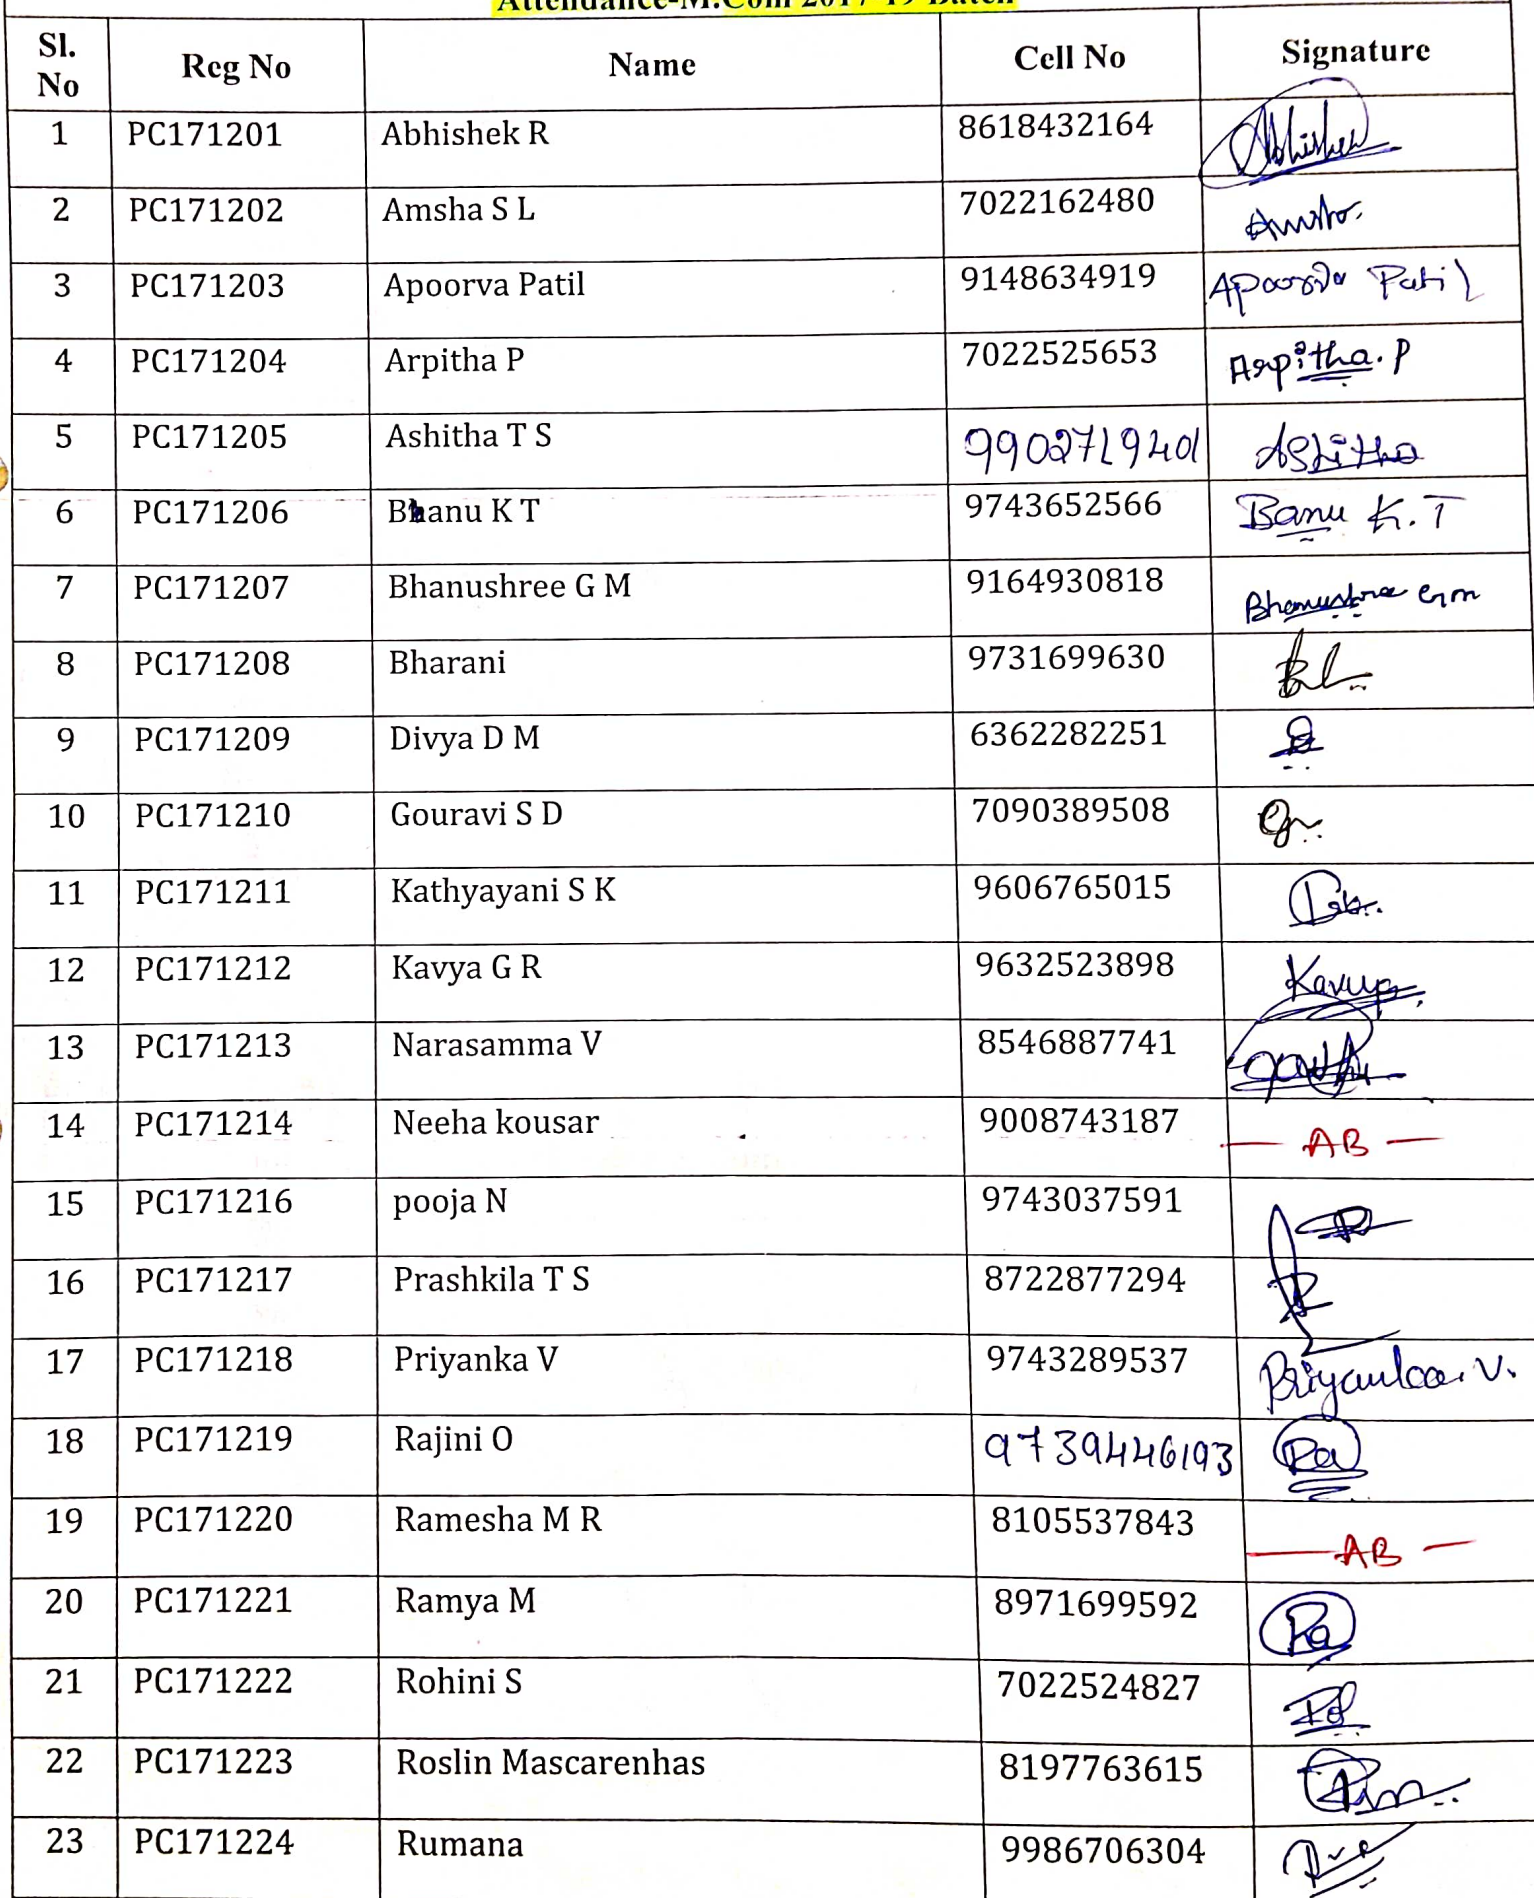 Attendance-M.Com 2017-19 Batch
Sl. No Reg No Name Cell No Signature
1 PC171201 Abhishek R 8618432164 Abhishek
2 PC171202 Amsha S L 7022162480
3 PC171203 Apoorva Patil 9148634919 Apoorva Patil
4 PC171204 Arpitha P 7022525653 Arpitha.P
5 PC171205 Ashitha T S 9902719401 Ashitha
6 PC171206 Bhanu K T 9743652566 Banu K.T
7 PC171207 Bhanushree G M 9164930818 Bhanushree GM
8 PC171208 Bharani 9731699630
9 PC171209 Divya D M 6362282251
10 PC171210 Gouravi S D 7090389508
11 PC171211 Kathyayani S K 9606765015
12 PC171212 Kavya G R 9632523898 Kavya
13 PC171213 Narasamma V 8546887741
14 PC171214 Neeha kousar 9008743187 — AB —
15 PC171216 pooja N 9743037591
16 PC171217 Prashkila T S 8722877294
17 PC171218 Priyanka V 9743289537 Priyanka.V.
18 PC171219 Rajini O 9739446193 Ra
19 PC171220 Ramesha M R 8105537843 — AB —
20 PC171221 Ramya M 8971699592 Ra
21 PC171222 Rohini S 7022524827
22 PC171223 Roslin Mascarenhas 8197763615
23 PC171224 Rumana 9986706304